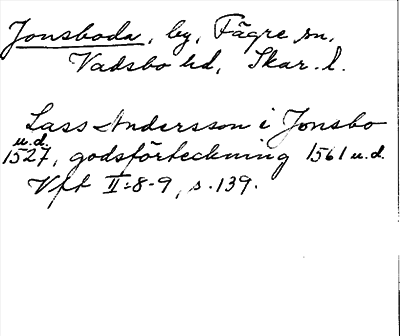 Jonsboda, by, Fägre sn,
Vadsbo hd, Skar. l.
Lass Andersson i Jonsbo
u.d.
1527, godsförteckning 1561 u.d.
Vft II:8-9, s.139.